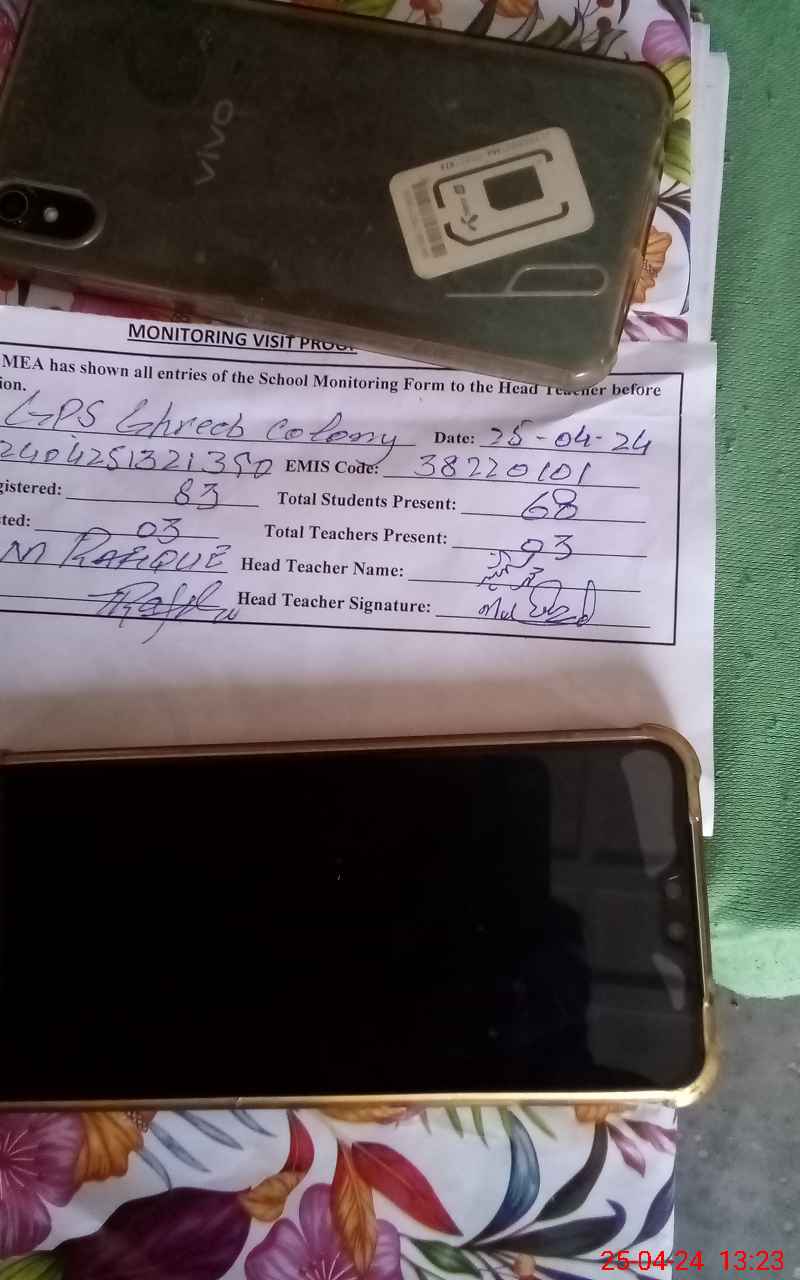 vivo
MONITORING VISIT PROOF
MEA has shown all entries of the School Monitoring Form to the Head Teacher before
ion.
GPS Ghreeb Colony Date: 25-04-24
2404251321350 EMIS Code: 38220101
gistered: 83 Total Students Present: 68
ted: 03 Total Teachers Present: 03
M RAFIQUE Head Teacher Name:
Head Teacher Signature:
25-04-24 13:23